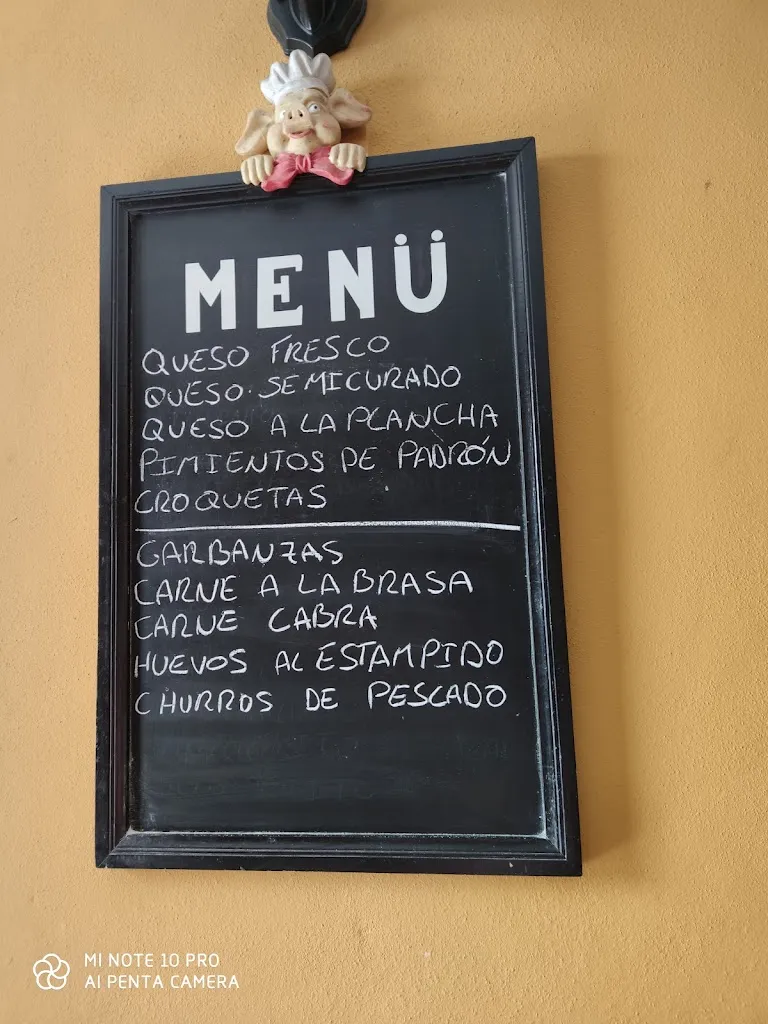 MENÜ
QUESO FRESCO
QUESO SEMICURADO
QUESO A LA PLANCHA
PIMIENTOS DE PADRÓN
CROQUETAS
GARBANZAS
CARNE A LA BRASA
CARNE CABRA
HUEVOS AL ESTAMPIDO
CHURROS DE PESCADO
MI NOTE 10 PRO
AI PENTA CAMERA